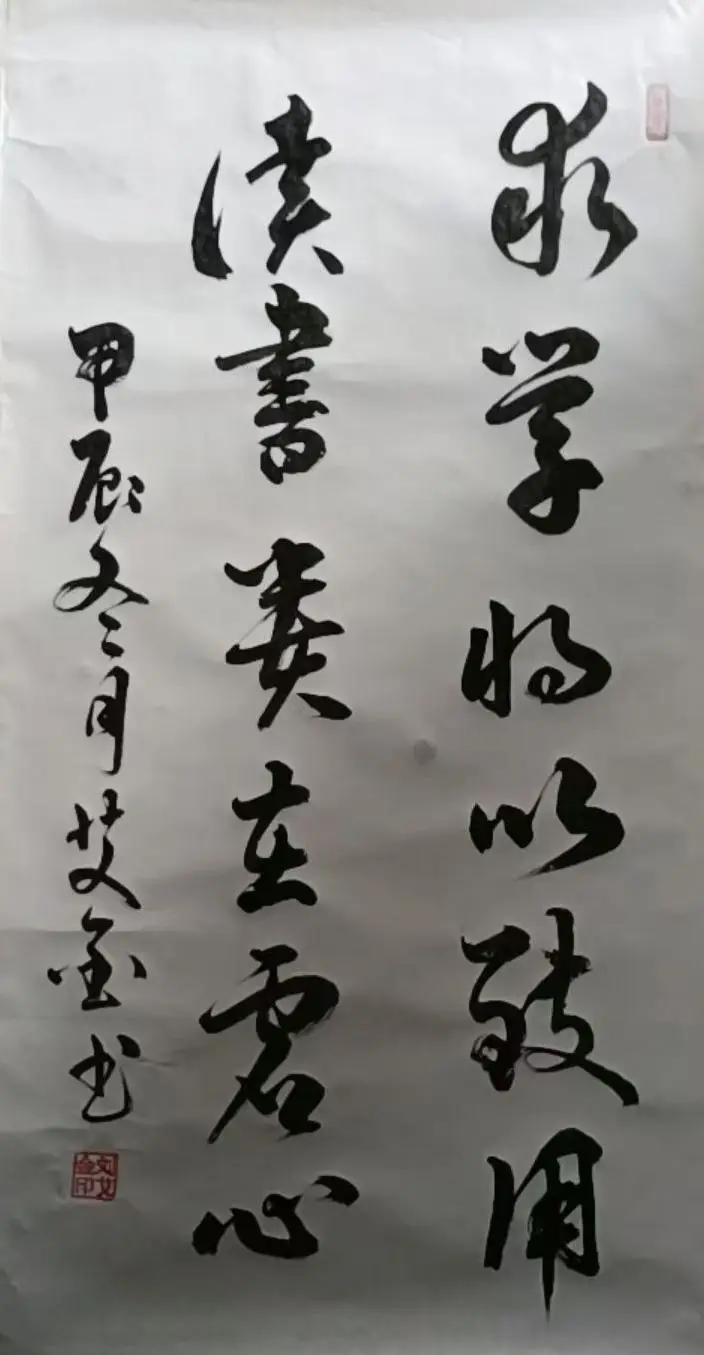 求学将以致用
读書贵在虚心
甲辰冬月艾金书